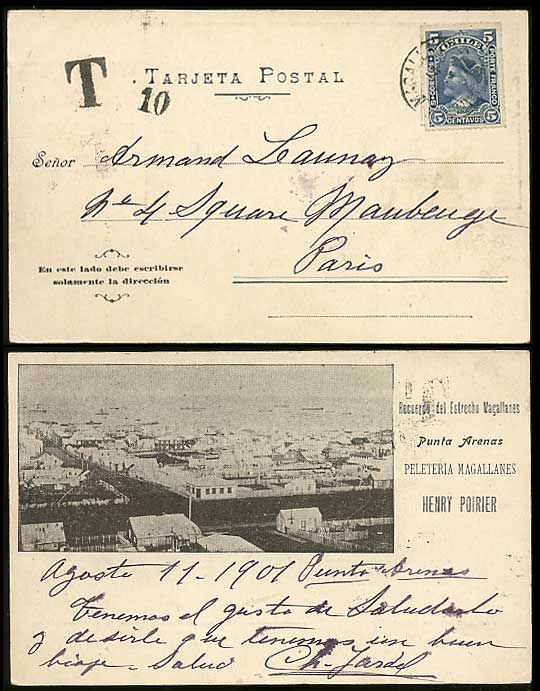 T
10
TARJETA POSTAL
MAGALL
5 CHILE 5
PORTE FRANCO
5 CENTAVOS 5
Señor Armand Launay
No 4 Square Maubeuge
Paris
En este lado debe escribirse
solamente la dirección
Recuerdo del Estrecho Magallanes
Punta Arenas
PELETERIA MAGALLANES
HENRY POIRIER
Agosto 11-1901 Punta Arenas
Tenemos el gusto de Saludarlo
y desirle que tenemos un buen
biaje - Salud Ch.